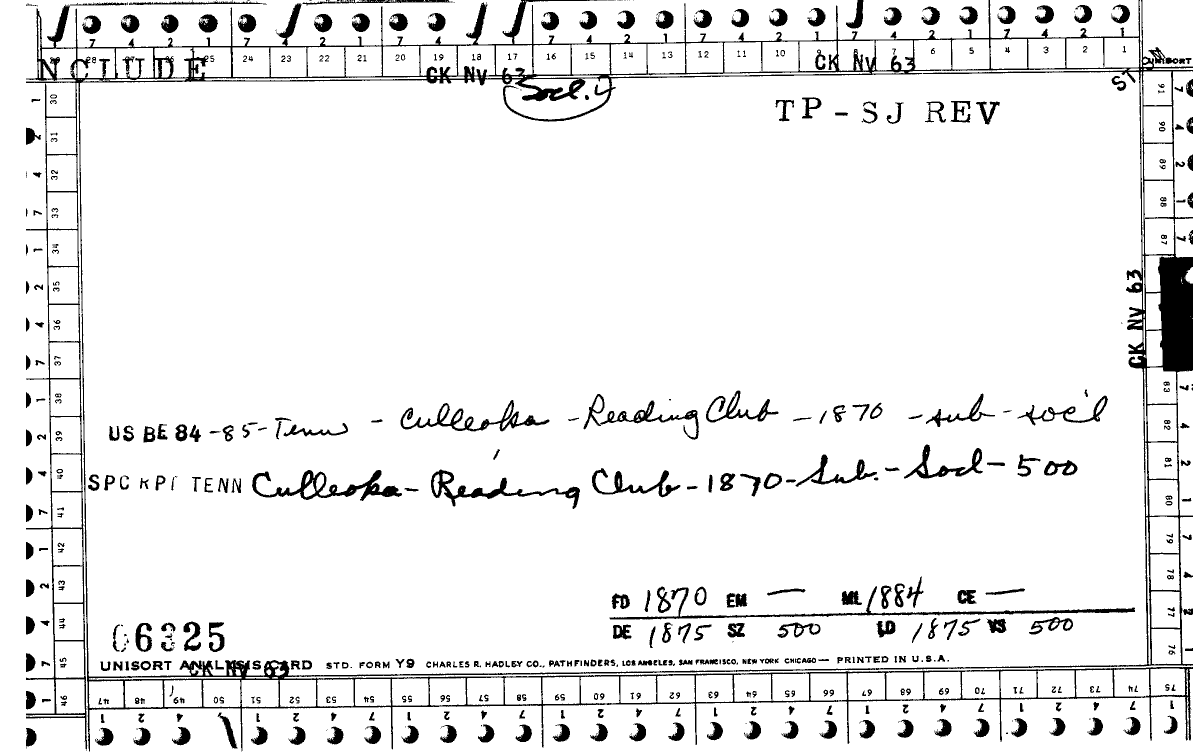 7 4 2 1 7 4 2 1 7 4 2 1 7 4 2 1 7 4 2 1 7 4 2 1
28 25 24 23 22 21 20 19 18 17 16 15 14 13 12 11 10 9 8 7 6 5 4 3 2 1
NCLUDE CK NV 63 CK NV 63 UNISORT
Socl.
TP-SJ REV
1 30
2 31
4 32
7 33
1 34
2 35
4 36
7 37
1 38
2 39
4 40
7 41
1 42
2 43
4 44
7 45
1 46
91 7
90 4
89 2
88 1
87 7
CK NV 63
83 7
82 4
81 2
80 1
79 7
78 4
77 2
76 1
US BE 84-85-Tenn - Culleoka - Reading Club - 1870 - sub - soc'l
SPC RPT TENN Culleoka - Reading Club - 1870 - Sub. - Socl - 500
FD 1870 EM — ML 1884 CE —
DE 1875 SZ 500 LD 1875 VS 500
06325
UNISORT ANALYSIS CARD STD. FORM Y9 CHARLES R. HADLEY CO., PATHFINDERS, LOS ANGELES, SAN FRANCISCO, NEW YORK CHICAGO — PRINTED IN U.S.A.
CK NV 63
47 48 49 50 51 52 53 54 55 56 57 58 59 60 61 62 63 64 65 66 67 68 69 70 71 72 73 74 75
1 2 4 1 2 4 7 1 2 4 7 1 2 4 7 1 2 4 7 1 2 4 7 1 2 4 7 1